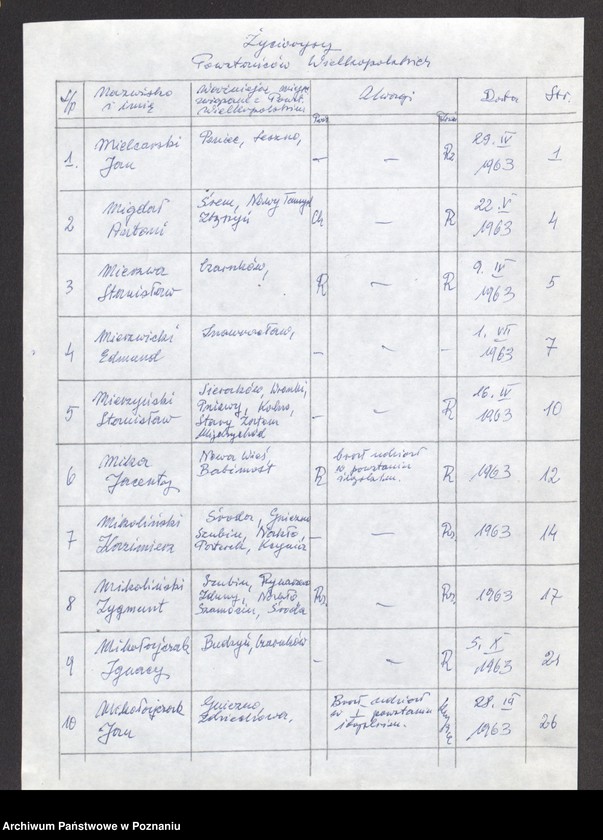 Życiorysy
Powstańców Wielkopolskich
L/p Nazwisko i imię Ważniejsze związane z Powst. Wielkopolskim Uwagi Data Str.
1. Mielcarski Jan Poniec, Leszno, — — Rz 29. IV 1963 1
2 Migdał Antoni Śrem, Nowy Tomyśl Zbąszyń Ch — R 22. V 1963 4
3 Mierzwa Stanisław Czarnków, R — R 9. IV 1963 5
4 Mierzwicki Edmund Inowrocław, — — — 1. VII 1963 7
5 Mierzyński Stanisław Sieraków, Wronki, Pniewy, Kolno, Międzychód — — R 16. IV 1963 10
6 Mika Jacenty Nowa Wieś Babimost R brał udział w powstaniu R 1963 12
7 Mikoliński Kazimierz Środa, Gniezno Szubin, Nakło, Kcynia — Rz. 1963 14
8 Mikoliński Zygmunt Szubin, Rynarzewo Zduny, Nakło Szamocin, Środa Rz. — Rz. 1963 17
9 Mikołajczak Ignacy Budzyń, Czarnków — — R 5. X 1963 21
10 Mikołajczak Jan Gniezno, Zdziechowa, Brał udział w I powstaniu 28. III 1963 26
Archiwum Państwowe w Poznaniu